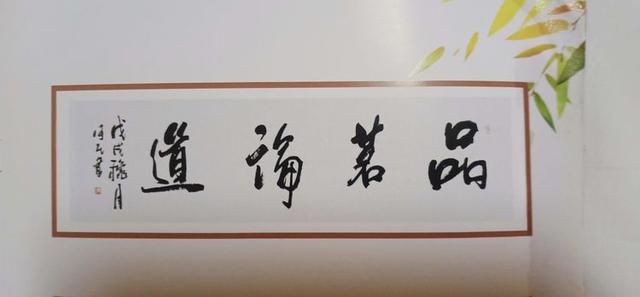 品茗論道
戊戌臘月